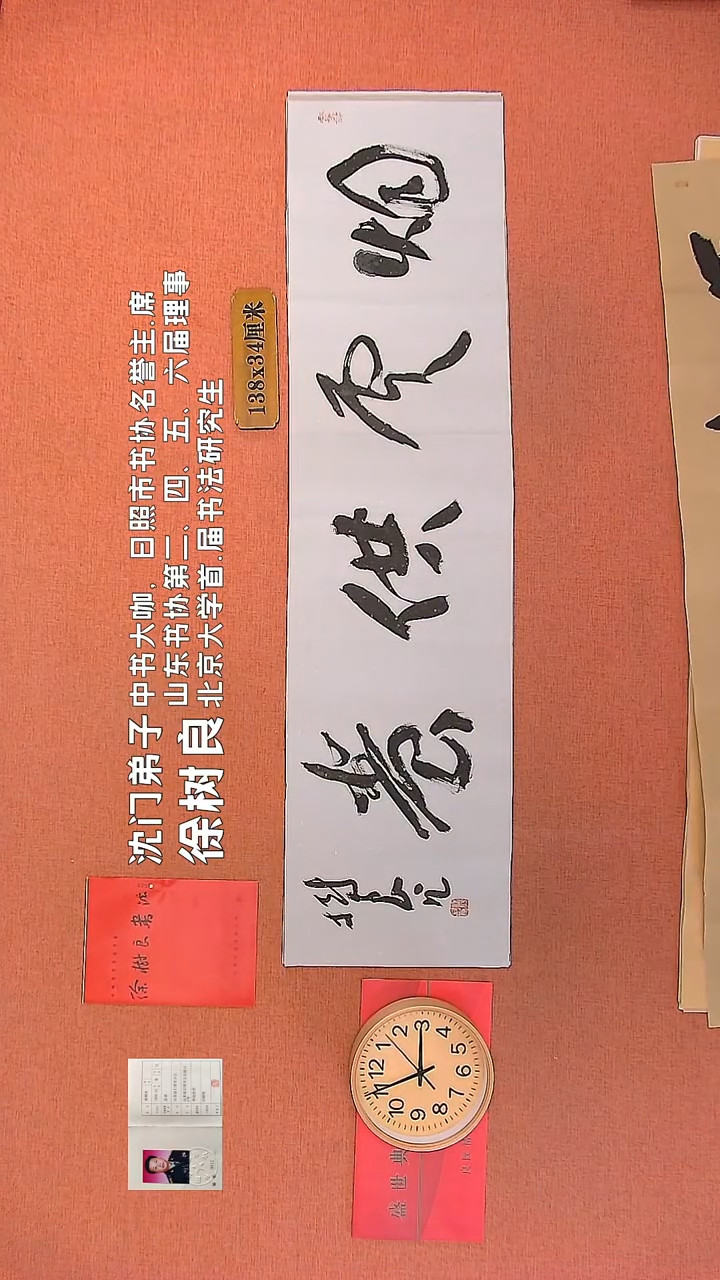 沈门弟子
徐树良
中书大咖，日照市书协名誉主.席
山东书协第二、四、五、六届理事
北京大学首.届书法研究生
138x34厘米
烟云供养
樹良
徐樹良书法
盛世典
12
1
2
3
4
5
6
7
8
9
10
11